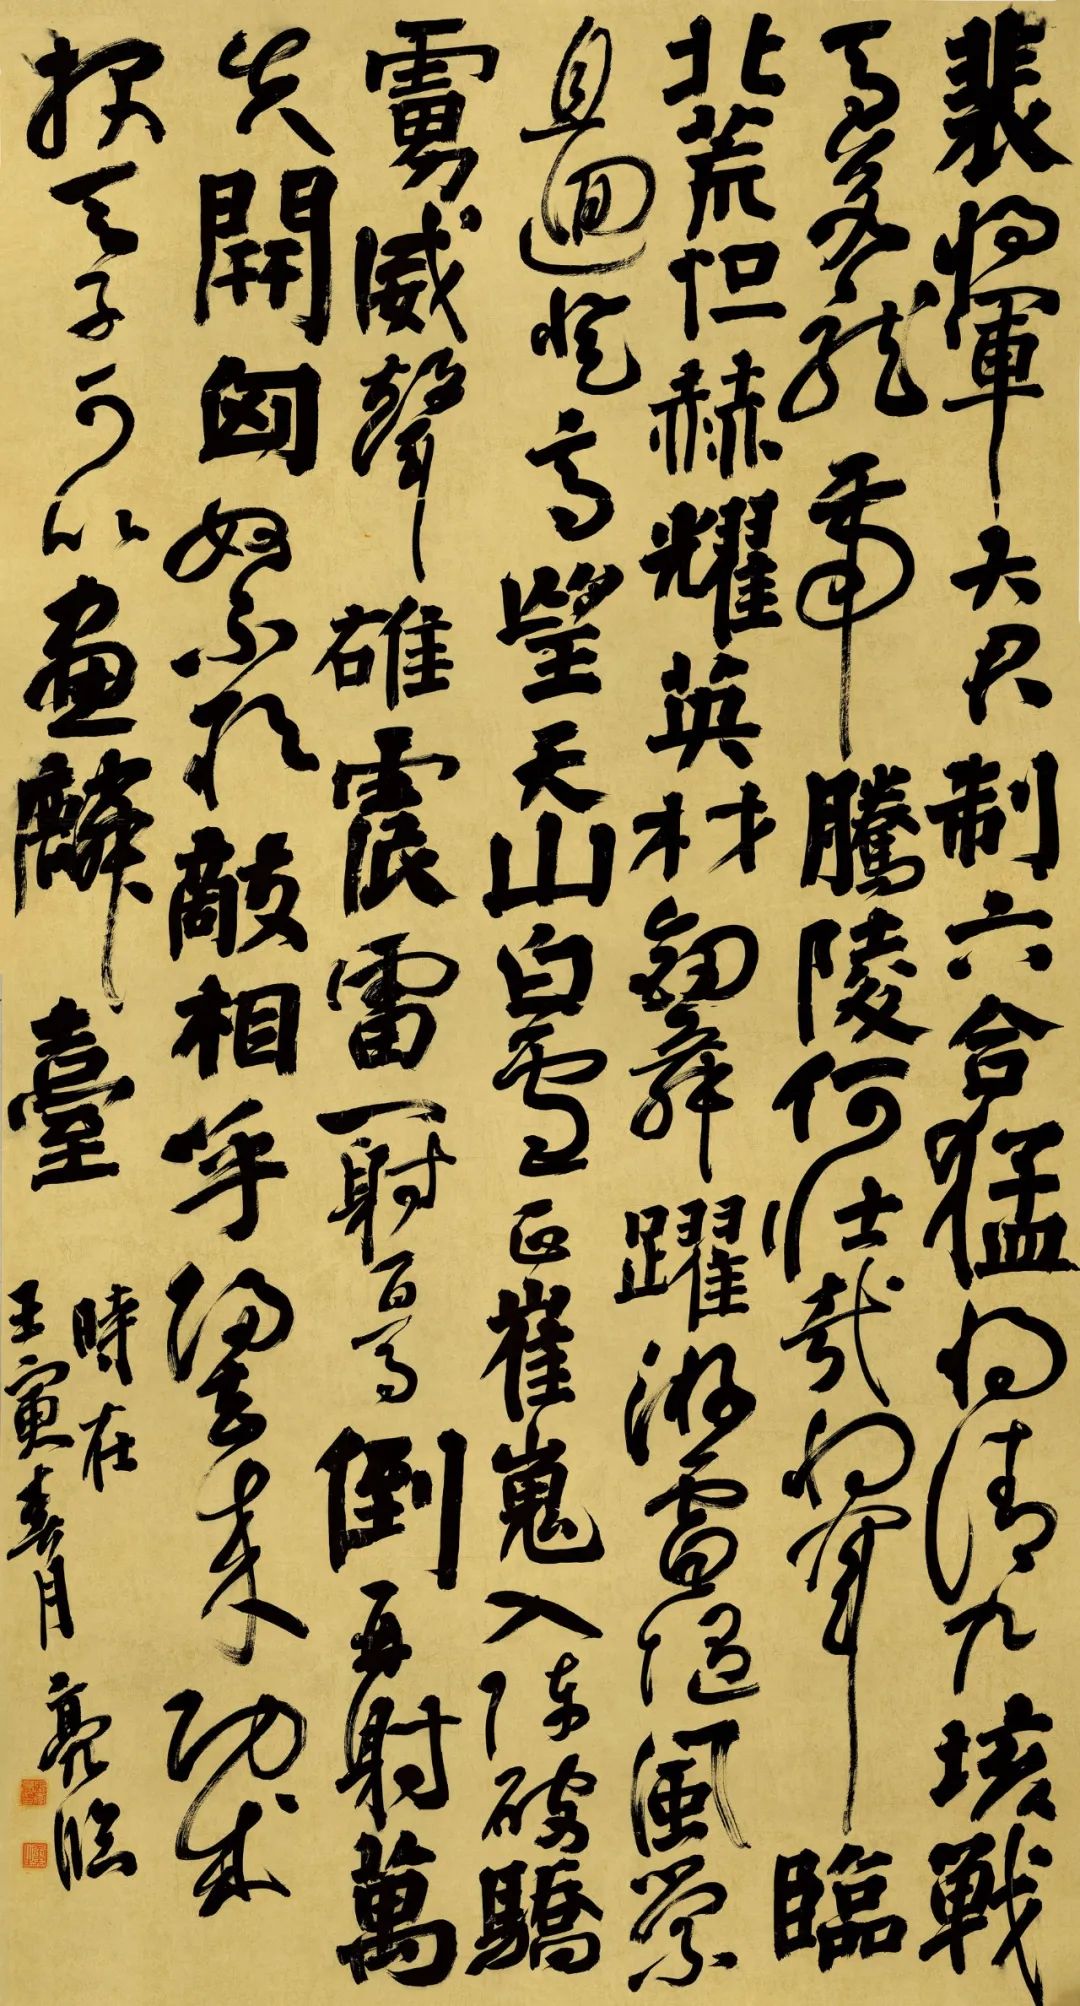 裴將軍大君制六合猛将清九垓戰
馬若龍虎騰陵何壮哉將軍臨
北荒怛赫耀英材劒舞躍游雷随風縈
且迴登高望天山白雪正崔嵬入陣破驕
虜威聲雄震雷一射百馬倒再射萬
夫開匈奴不敢敵相呼歸去来功成
報天子可以畫麟臺
時在
壬寅春月亮臨